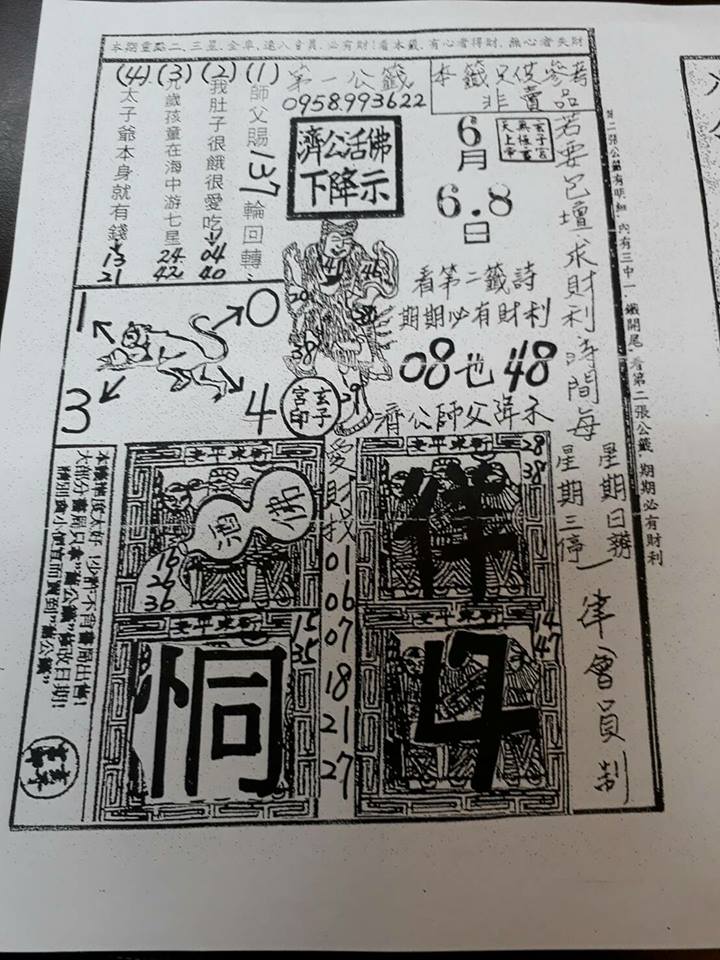 本期重點二、三星、全車、進八會員、必有財!看本籤、有心者得財、無心者失財
第一公籤
0958.993622
本籤只供參考
非賣品
(1)師父賜137輪回轉
(2)我肚子很餓很愛吃
04
40
(3)九歲孩童在海中游七星
24
42
(4)太子爺本身就有錢
13
21
濟公活佛
下降示
6月
6.8
日
玄子宮
無極
天上帝
看第二籤詩
期期必有財利
08也48
濟公師父降示
41
46
20
38
29
玄子
宮印
1
0
3
4
若要包壇求財利時間每
星期日
星期三停
一律會員制
第二張公籤有明細 內有三中一 鐵開尾 看第二張公籤 期期必有財利
愛財找
01
06
07
18
21
27
佛
酒
16
26
36
28
38
新東平安
新東平安
恫
15
35
14
47